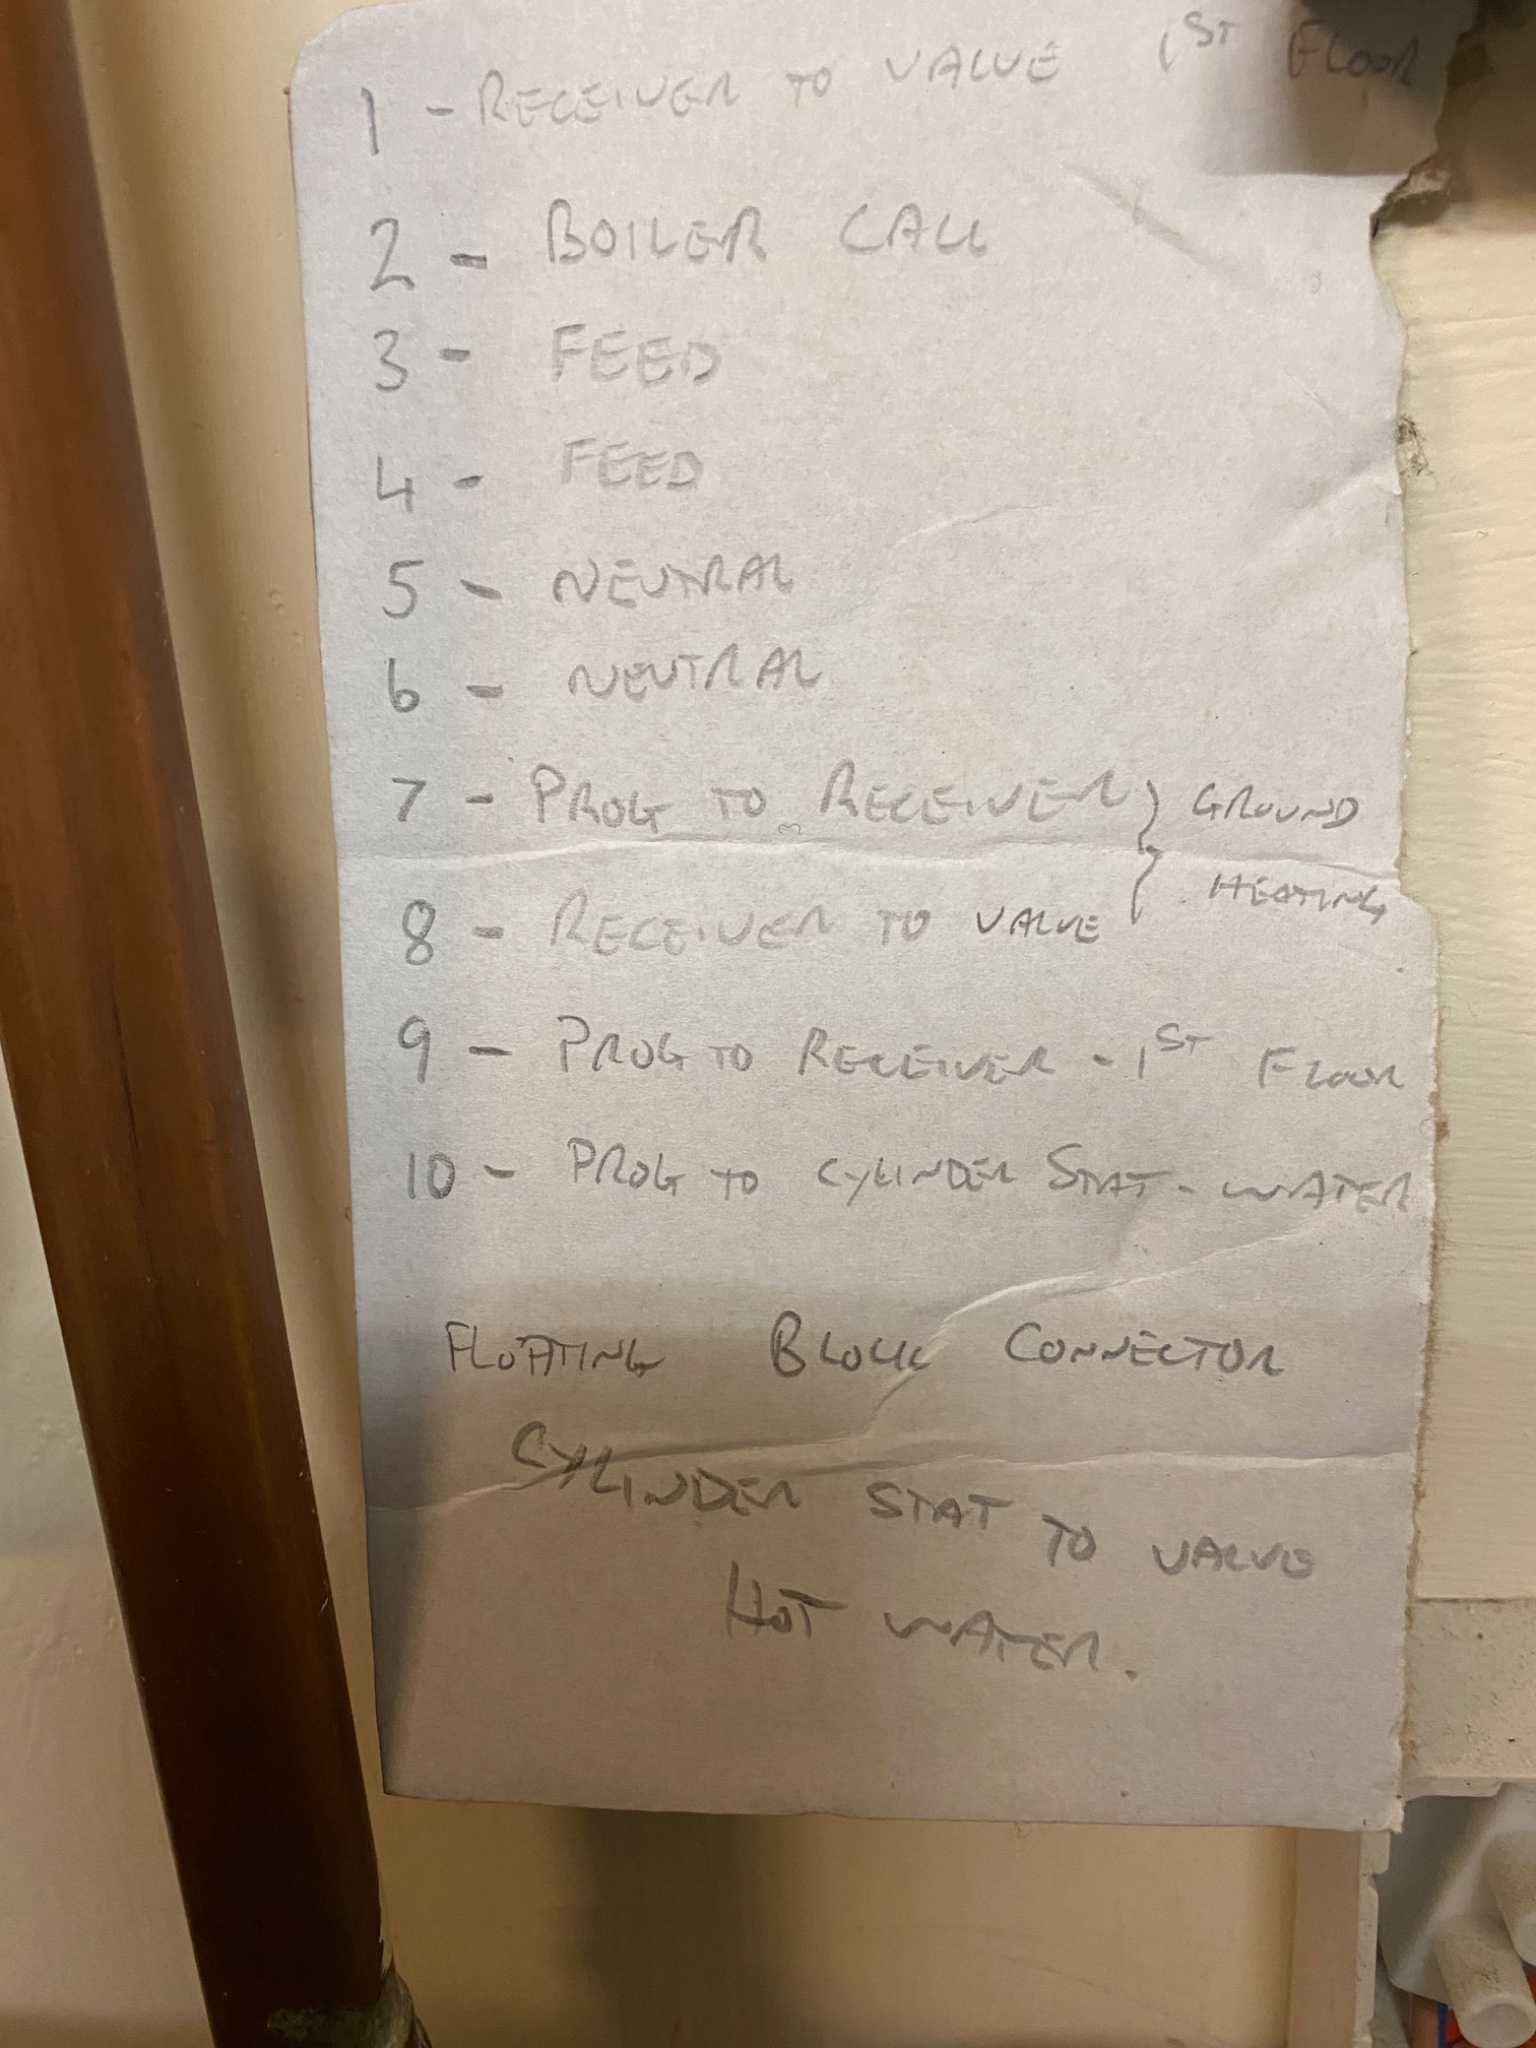 1 - RECEIVER TO VALVE 1ST FLOOR
2 - BOILER CALL
3 - FEED
4 - FEED
5 - NEUTRAL
6 - NEUTRAL
7 - PROG TO RECEIVER } GROUND
HEATING
8 - RECEIVER TO VALVE
9 - PROG TO RECEIVER - 1ST FLOOR
10 - PROG TO CYLINDER STAT - WATER
FLOATING BLOCK CONNECTOR
CYLINDER STAT TO VALVE
HOT WATER.